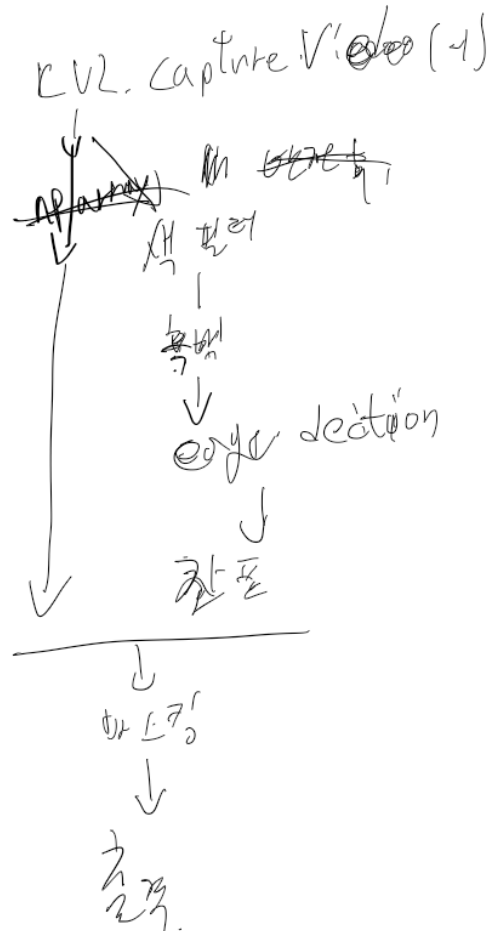 cv2. capture.Video(-1)
np array
색 필터
흑백
edge dection
좌표
마스킹
출력